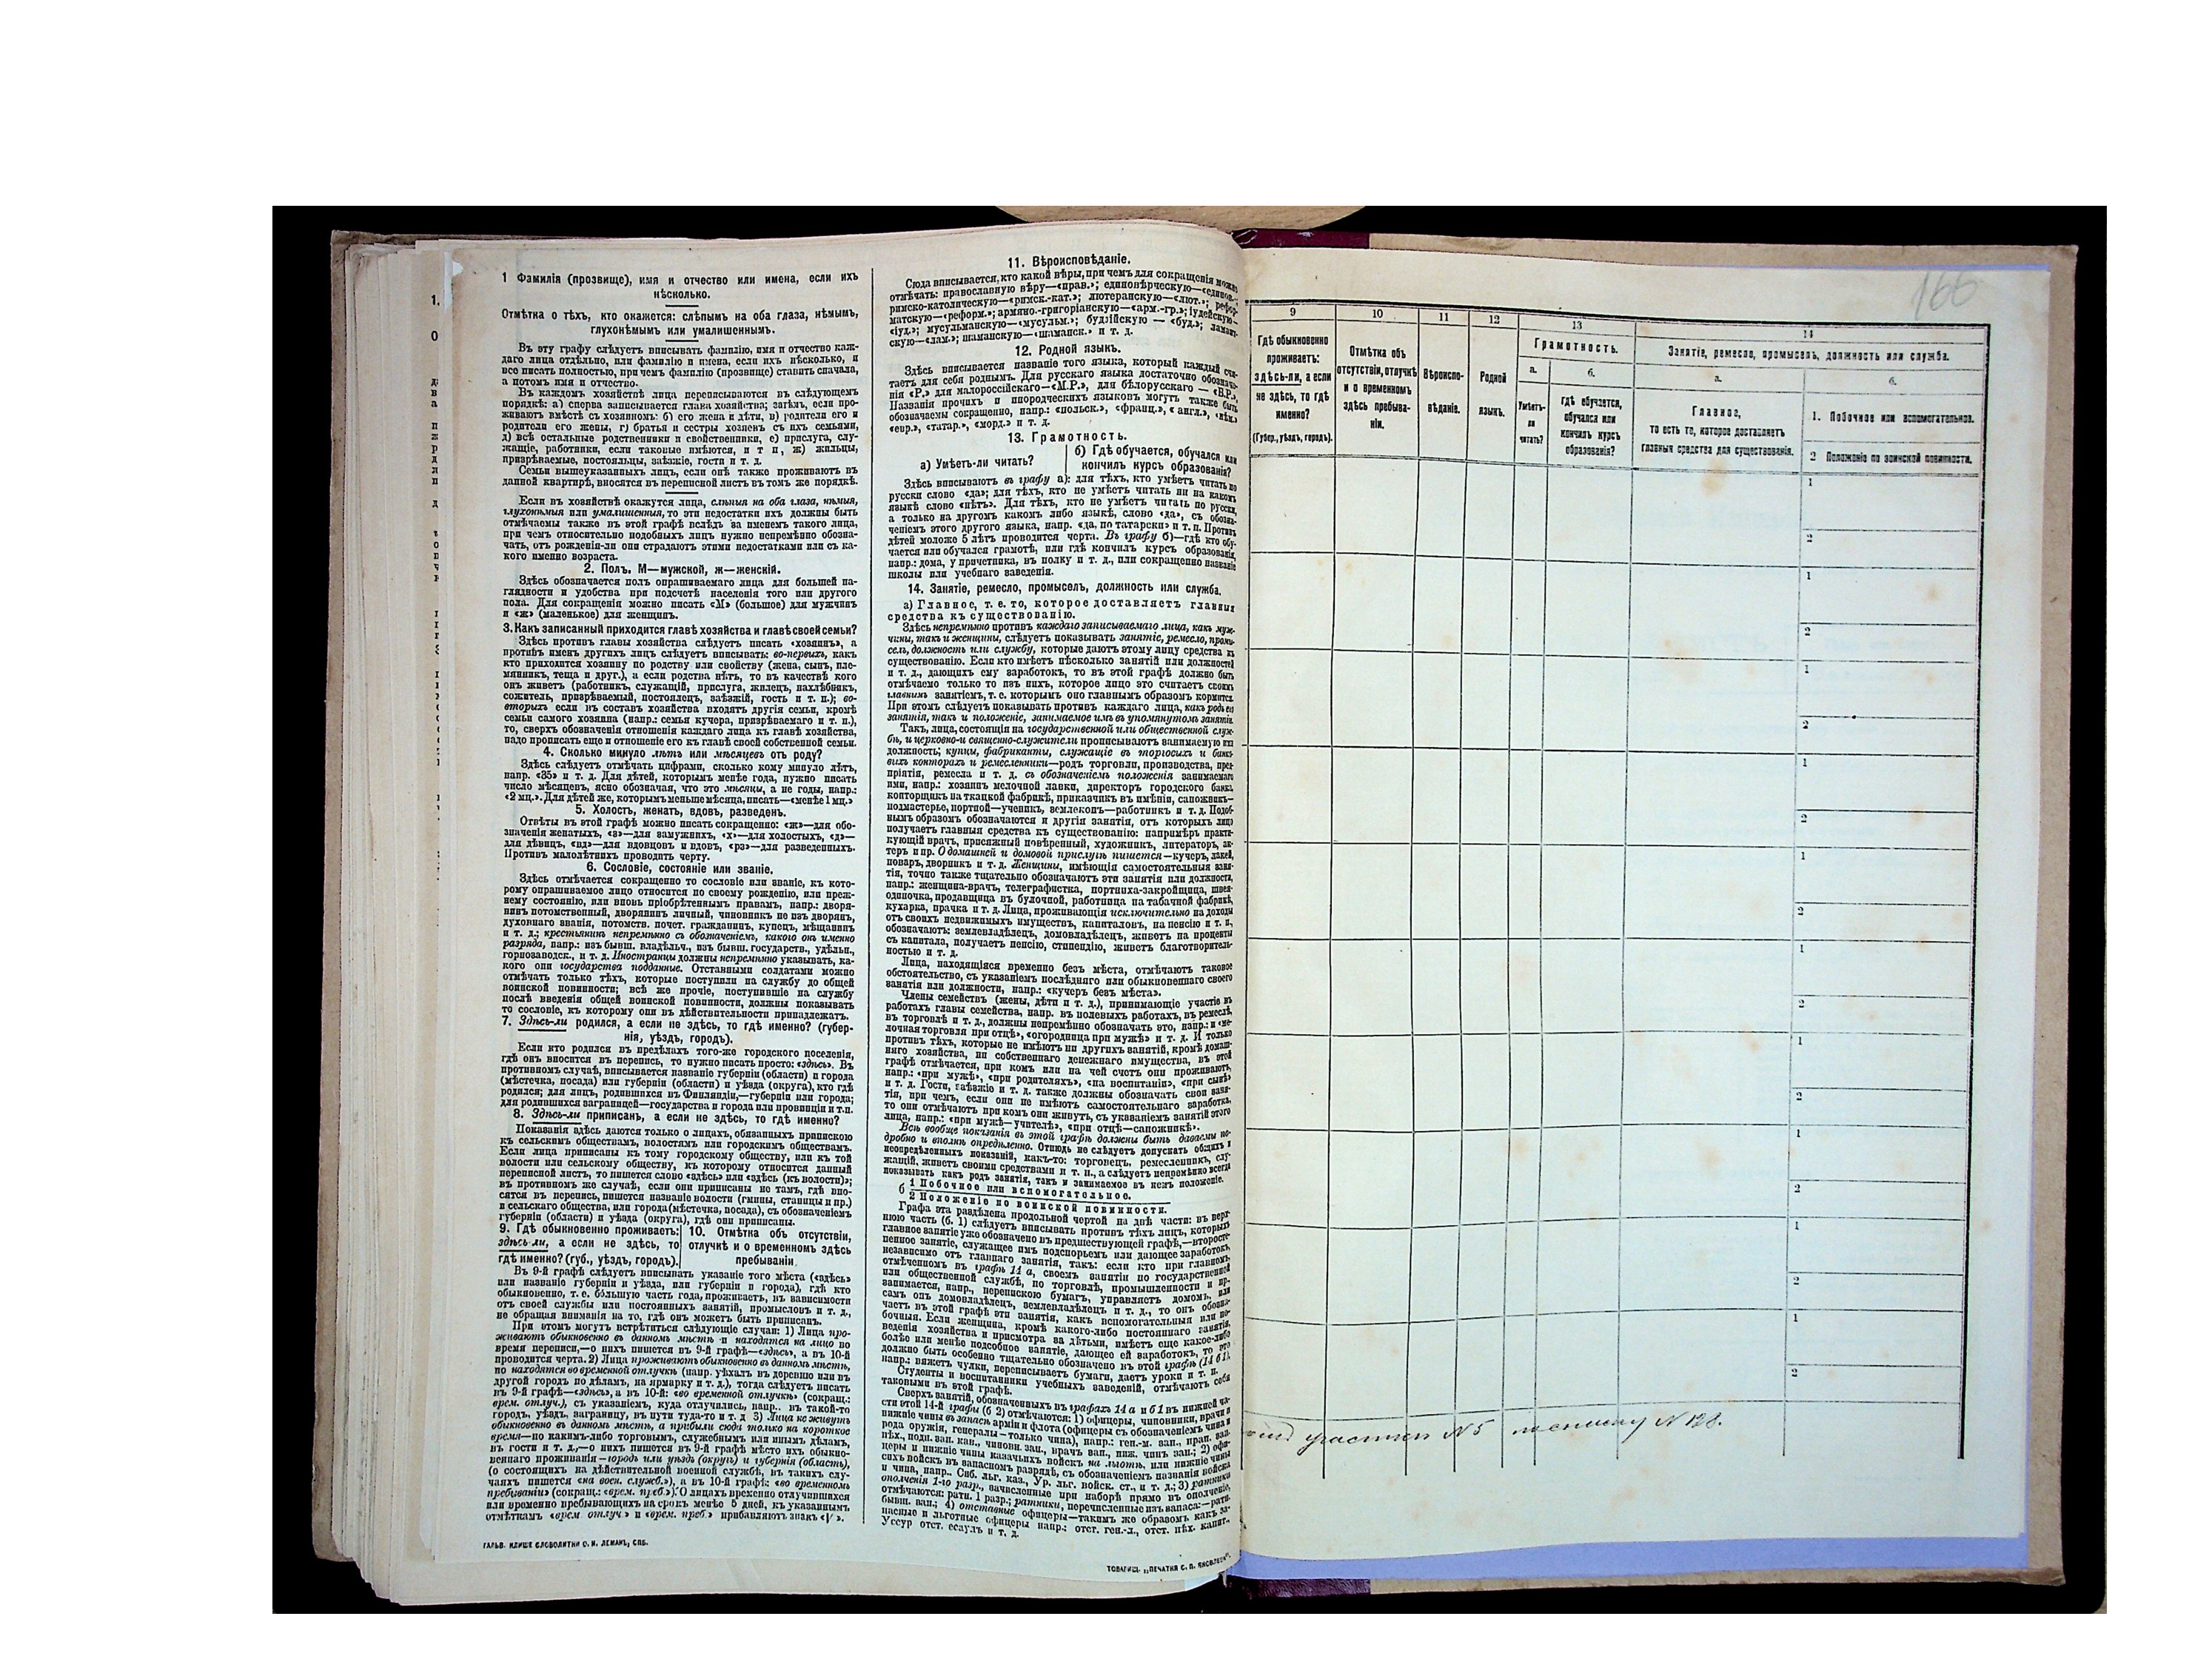 1 Фамилія (прозвище), имя и отчество или имена, если ихъ
нѣсколько.
Отмѣтка о тѣхъ, кто окажется: слѣпымъ на оба глаза, нѣмымъ,
глухонѣмымъ или умалишеннымъ.
Въ эту графу слѣдуетъ вписывать фамилію, имя и отчество каж-
даго лица отдѣльно, или фамилію и имена, если ихъ нѣсколько, и
все писать полностью, при чемъ фамилію (прозвище) ставить сначала,
а потомъ имя и отчество.
Въ каждомъ хозяйствѣ лица переписываются въ слѣдующемъ
порядкѣ: а) сперва записывается глава хозяйства; затѣмъ, если про-
живаютъ вмѣстѣ съ хозяиномъ: б) его жена и дѣти, в) родители его и
родители его жены, г) братья и сестры хозяевъ съ ихъ семьями,
д) всѣ остальные родственники и свойственники, е) прислуга, слу-
жащіе, работники, если таковые имѣются, и т п, ж) жильцы,
призрѣваемые, постояльцы, заѣзжіе, гости и т. д.
Семьи вышеуказанныхъ лицъ, если онѣ также проживаютъ въ
данной квартирѣ, вносятся въ переписной листъ въ томъ же порядкѣ.
Если въ хозяйствѣ окажутся лица, слѣпыя на оба глаза, нѣмыя,
глухонѣмыя или умалишенныя, то эти недостатки ихъ должны быть
отмѣчаемы также въ этой графѣ вслѣдъ за именемъ такого лица,
при чемъ относительно подобныхъ лицъ нужно непремѣнно обозна-
чать, отъ рожденія-ли они страдаютъ этими недостатками или съ ка-
кого именно возраста.
2. Полъ. М—мужской, ж—женскій.
Здѣсь обозначается полъ опрашиваемаго лица для большей на-
глядности и удобства при подсчетѣ населенія того или другого
пола. Для сокращенія можно писать «М» (большое) для мужчинъ
и «ж» (маленькое) для женщинъ.
3. Какъ записанный приходится главѣ хозяйства и главѣ своей семьи?
Здѣсь противъ главы хозяйства слѣдуетъ писать «хозяинъ», а
противъ именъ другихъ лицъ слѣдуетъ вписывать: во-первыхъ, какъ
кто приходится хозяину по родству или свойству (жена, сынъ, пле-
мянникъ, теща и друг.), а если родства нѣтъ, то въ качествѣ кого
онъ живетъ (работникъ, служащій, прислуга, жилецъ, нахлѣбникъ,
сожитель, призрѣваемый, постоялецъ, заѣзжій, гость и т. п.); во-
вторыхъ если въ составъ хозяйства входятъ другія семьи, кромѣ
семьи самого хозяина (напр.: семья кучера, призрѣваемаго и т. п.),
то, сверхъ обозначенія отношенія каждаго лица къ главѣ хозяйства,
надо прописать еще и отношеніе его къ главѣ своей собственной семьи.
4. Сколько минуло лѣтъ или мѣсяцевъ отъ роду?
Здѣсь слѣдуетъ отмѣчать цифрами, сколько кому минуло лѣтъ,
напр. «35» и т. д. Для дѣтей, которымъ менѣе года, нужно писать
число мѣсяцевъ, ясно обозначая, что это мѣсяцы, а не годы, напр.:
«2 мц.». Для дѣтей же, которымъ меньше мѣсяца, писать—«менѣе 1 мц.»
5. Холостъ, женатъ, вдовъ, разведенъ.
Отвѣты въ этой графѣ можно писать сокращенно: «ж»—для обо-
значенія женатыхъ, «з»—для замужнихъ, «х»—для холостыхъ, «д»—
для дѣвицъ, «вд»—для вдовцовъ и вдовъ, «рз»—для разведенныхъ.
Противъ малолѣтнихъ проводить черту.
6. Сословіе, состояніе или званіе.
Здѣсь отмѣчается сокращенно то сословіе или званіе, къ кото-
рому опрашиваемое лицо относится по своему рожденію, или преж-
нему состоянію, или вновь пріобрѣтеннымъ правамъ, напр.: дворя-
нинъ потомственный, дворянинъ личный, чиновникъ не изъ дворянъ,
духовнаго званія, потомств. почет. гражданинъ, купецъ, мѣщанинъ
и т. д.; крестьянинъ непремѣнно съ обозначеніемъ, какого онъ именно
разряда, напр.: изъ бывш. владѣльч., изъ бывш. государств., удѣльн.,
горнозаводск., и т. д. Иностранцы должны непремѣнно указывать, ка-
кого они государства подданные. Отставными солдатами можно
отмѣчать только тѣхъ, которые поступили на службу до общей
воинской повинности; всѣ же прочіе, поступившіе на службу
послѣ введенія общей воинской повинности, должны показывать
то сословіе, къ которому они въ дѣйствительности принадлежатъ.
7. Здѣсь-ли родился, а если не здѣсь, то гдѣ именно? (губер-
нія, уѣздъ, городъ).
Если кто родился въ предѣлахъ того-же городского поселенія,
гдѣ онъ вносится въ перепись, то нужно писать просто: «здѣсь». Въ
противномъ случаѣ, вписывается названіе губерніи (области) и города
(мѣстечка, посада) или губерніи (области) и уѣзда (округа), кто гдѣ
родился; для лицъ, родившихся въ Финляндіи,—губерніи или города;
для родившихся заграницей—государства и города или провинціи и т.п.
8. Здѣсь-ли приписанъ, а если не здѣсь, то гдѣ именно?
Показанія здѣсь даются только о лицахъ, обязанныхъ припискою
къ сельскимъ обществамъ, волостямъ или городскимъ обществамъ.
Если лица приписаны къ тому городскому обществу, или къ той
волости или сельскому обществу, къ которому относится данный
переписной листъ, то пишется слово «здѣсь» или «здѣсь (къ волости)»;
въ противномъ же случаѣ, если они приписаны не тамъ, гдѣ вно-
сятся въ перепись, пишется названіе волости (гмины, станицы и пр.)
и сельскаго общества, или города (мѣстечка, посада), съ обозначеніемъ
губерніи (области) и уѣзда (округа), гдѣ они приписаны.
9. Гдѣ обыкновенно проживаетъ:
здѣсь ли, а если не здѣсь, то
гдѣ именно? (губ., уѣздъ, городъ).
10. Отмѣтка объ отсутствіи,
отлучкѣ и о временномъ здѣсь
пребываніи.
Въ 9-й графѣ слѣдуетъ вписывать указаніе того мѣста («здѣсь»
или названіе губерніи и уѣзда, или губерніи и города), гдѣ кто
обыкновенно, т. е. большую часть года, проживаетъ, въ зависимости
отъ своей службы или постоянныхъ занятій, промысловъ и т. д.,
не обращая вниманія на то, гдѣ онъ можетъ быть приписанъ.
При этомъ могутъ встрѣтиться слѣдующіе случаи: 1) Лица про-
живаютъ обыкновенно въ данномъ мѣстѣ и находятся на лицо во
время переписи,—о нихъ пишется въ 9-й графѣ—«здѣсь», а въ 10-й
проводится черта. 2) Лица проживаютъ обыкновенно въ данномъ мѣстѣ,
но находятся во временной отлучкѣ (напр. уѣхалъ въ деревню или въ
другой городъ по дѣламъ, на ярмарку и т. д.), тогда слѣдуетъ писать
въ 9-й графѣ—«здѣсь», а въ 10-й: «во временной отлучкѣ» (сокращ.:
врем. отлуч.), съ указаніемъ, куда отлучились, напр., въ такой-то
городъ, уѣздъ, заграницу, въ пути туда-то и т. д 3) Лица не живутъ
обыкновенно въ данномъ мѣстѣ, а прибыли сюда только на короткое
время—по какимъ-либо торговымъ, служебнымъ или инымъ дѣламъ,
въ гости и т. д.,—о нихъ пишется въ 9-й графѣ мѣсто ихъ обыкно-
веннаго проживанія—городъ или уѣздъ (округъ) и губернія (область),
(о состоящихъ на дѣйствительной военной службѣ, въ такихъ слу-
чаяхъ пишется «на воен. служб.»), а въ 10-й графѣ: «во временномъ
пребываніи» (сокращ.: «врем. преб.»). О лицахъ временно отлучившихся
или временно пребывающихъ на срокъ менѣе 5 дней, къ указаннымъ
отмѣткамъ «врем отлуч.» и «врем. преб.» прибавляютъ знакъ «|/».
ГАЛЬВ. КЛИШЕ СЛОВОЛИТНИ О. И. ЛЕМАНЪ, СПБ.
11. Вѣроисповѣданіе.
Сюда вписывается, кто какой вѣры, при чемъ для сокращенія можно
отмѣчать: православную вѣру—«прав.»; единовѣрческую—«единов.»;
римско-католическую—«римск.-кат.»; лютеранскую—«лют.»; рефор-
матскую—«реформ.»; армяно.-григоріанскую—«арм.-гр.»; іудейскую—
«іуд.»; мусульманскую—«мусульм.»; буддійскую — «буд.»; ламаит-
скую—«лам.»; шаманскую—«шаманск.» и т. д.
12. Родной языкъ.
Здѣсь вписывается названіе того языка, который каждый счи-
таетъ для себя роднымъ. Для русскаго языка достаточно обозначе-
нія «Р.» для малороссійскаго—«М.Р.», для бѣлорусскаго — «Б.Р.».
Названія прочихъ и инородческихъ языковъ могутъ также быть
обозначаемы сокращенно, напр.: «польск.», «франц.», « англ.», «нѣм.»
«евр.», «татар.», «морд.» и т. д.
13. Грамотность.
а) Умѣетъ-ли читать?
б) Гдѣ обучается, обучался или
кончилъ курсъ образованія?
Здѣсь вписываютъ въ графу а): для тѣхъ, кто умѣетъ читать по
русски слово «да»; для тѣхъ, кто не умѣетъ читать ни на какомъ
языкѣ слово «нѣтъ». Для тѣхъ, кто не умѣетъ читать по русски,
а только на другомъ какомъ либо языкѣ, слово «да», съ обозна-
ченіемъ этого другого языка, напр. «да, по татарски» и т. п. Противъ
дѣтей моложе 5 лѣтъ проводится черта. Въ графу б)—гдѣ кто обу-
чается или обучался грамотѣ, или гдѣ кончилъ курсъ образованія,
напр.: дома, у причетника, въ полку и т. д., или сокращенно названіе
школы или учебнаго заведенія.
14. Занятіе, ремесло, промыселъ, должность или служба.
а) Главное, т. е. то, которое доставляетъ главныя
средства къ существованію.
Здѣсь непремѣнно противъ каждаго записываемаго лица, какъ муж-
чины, такъ и женщины, слѣдуетъ показывать занятіе, ремесло, промы-
селъ, должность или службу, которые даютъ этому лицу средства къ
существованію. Если кто имѣетъ нѣсколько занятій или должностей
и т. д., дающихъ ему заработокъ, то въ этой графѣ должно быть
отмѣчаемо только то изъ нихъ, которое лицо это считаетъ своимъ
главнымъ занятіемъ, т. е. которымъ оно главнымъ образомъ кормится.
При этомъ слѣдуетъ показывать противъ каждаго лица, какъ родъ его
занятія, такъ и положеніе, занимаемое имъ въ упомянутомъ занятіи.
Такъ, лица, состоящія на государственной или общественной служ-
бѣ, и церковно-и священно-служители прописываютъ занимаемую ими
должность; купцы, фабриканты, служащіе въ торговыхъ и банко-
выхъ конторахъ и ремесленники—родъ торговли, производства, пред-
пріятія, ремесла и т. д. съ обозначеніемъ положенія занимаемаго
ими, напр.: хозяинъ мелочной лавки, директоръ городского банка,
конторщикъ на ткацкой фабрикѣ, приказчикъ въ имѣніи, сапожникъ—
подмастерье, портной—ученикъ, землекопъ—работникъ и т. д. Подоб-
нымъ образомъ обозначаются и другія занятія, отъ которыхъ лицо
получаетъ главныя средства къ существованію: напримѣръ практи-
кующій врачъ, присяжный повѣренный, художникъ, литераторъ, ак-
теръ и пр. О домашней и домовой прислугѣ пишется—кучеръ, лакей,
поваръ, дворникъ и т. д. Женщины, имѣющія самостоятельныя заня-
тія, точно также тщательно обозначаютъ эти занятія или должности,
напр.: женщина-врачъ, телеграфистка, портниха-закройщица, швея-
одиночка, продавщица въ булочной, работница на табачной фабрикѣ,
кухарка, прачка и т. д. Лица, проживающія исключительно на доходы
отъ своихъ недвижимыхъ имуществъ, капиталовъ, на пенсію и т. п.,
обозначаютъ: землевладѣлецъ, домовладѣлецъ, живетъ на проценты
съ капитала, получаетъ пенсію, стипендію, живетъ благотворитель-
ностью и т. д.
Лица, находящіяся временно безъ мѣста, отмѣчаютъ таковое
обстоятельство, съ указаніемъ послѣдняго или обыкновеннаго своего
занятія или должности, напр.: «кучеръ безъ мѣста».
Члены семействъ (жены, дѣти и т. д.), принимающіе участіе въ
работахъ главы семейства, напр. въ полевыхъ работахъ, въ ремеслѣ,
въ торговлѣ и т. д., должны непремѣнно обозначать это, напр.: и «ме-
лочная торговля при отцѣ», «огородница при мужѣ» и т. д. И только
противъ тѣхъ, которые не имѣютъ ни другихъ занятій, кромѣ домаш-
няго хозяйства, ни собственнаго денежнаго имущества, въ этой
графѣ отмѣчается, при комъ или на чей счетъ они проживаютъ,
напр.: «при мужѣ», «при родителяхъ», «на воспитаніи», «при сынѣ»
и т. д. Гости, заѣзжіе и т. д. также должны обозначать свои заня-
тія, при чемъ, если они не имѣютъ самостоятельнаго заработка,
то они отмѣчаютъ при комъ они живутъ, съ указаніемъ занятій этого
лица, напр.: «при мужѣ—учителѣ», «при отцѣ—сапожникѣ».
Всѣ вообще показанія въ этой графѣ должны быть даваемы по-
дробно и вполнѣ опредѣленно. Отнюдь не слѣдуетъ допускать общихъ и
неопредѣленныхъ показаній, какъ-то: торговецъ, ремесленникъ, слу-
жащій, живетъ своими средствами и т. п., а слѣдуетъ непремѣнно всегда
показывать какъ родъ занятія, такъ и занимаемое въ немъ положеніе.
б 1 Побочное или вспомогательное.
2 Положеніе по воинской повинности.
Графа эта раздѣлена продольной чертой на двѣ части: въ верх-
нюю часть (б. 1) слѣдуетъ вписывать противъ тѣхъ лицъ, которыхъ
главное занятіе уже обозначено въ предшествующей графѣ,—второсте-
пенное занятіе, служащее имъ подспорьемъ или дающее заработокъ,
независимо отъ главнаго занятія, такъ: если кто при главномъ,
отмѣченномъ въ графѣ 14 а, своемъ занятіи по государственной
или общественной службѣ, по торговлѣ, промышленности и пр.
занимается, напр., перепискою бумагъ, управляетъ домомъ, или
самъ онъ домовладѣлецъ, землевладѣлецъ и т. д., то онъ обозна-
чаетъ въ этой графѣ эти занятія, какъ вспомогательныя или по-
бочныя. Если женщина, кромѣ какого-либо постояннаго занятія,
веденія хозяйства и присмотра за дѣтьми, имѣетъ еще какое-либо
болѣе или менѣе подсобное занятіе, дающее ей заработокъ, то это
должно быть особенно тщательно обозначено въ этой графѣ (14 б 1),
напр.: вяжетъ чулки, переписываетъ бумаги, даетъ уроки и т. п.
Студенты и воспитанники учебныхъ заведеній, отмѣчаютъ себя
таковыми въ этой графѣ.
Сверхъ занятій, обозначенныхъ въ графахъ 14 а и б 1 въ нижней ча-
сти этой 14-й графы (б 2) отмѣчаются: 1) офицеры, чиновники, врачи и
нижніе чины въ запасѣ арміи и флота (офицеры съ обозначеніемъ чина и
рода оружія, генералы—только чина), напр.: ген-м. зап., прап. зап.
пѣх., подп. зап. кав., чиновн. зап., врачъ зап., ниж. чинъ зап.; 2) офи-
церы и нижніе чины казачьихъ войскъ на льготѣ, или нижніе чины
сихъ войскъ въ запасномъ разрядѣ, съ обозначеніемъ названія войска
и чина, напр. Сиб. льг. каз., Ур. льг. войск. ст., и т. д.; 3) ратники
ополченія 1-го разр., зачисленные при наборѣ прямо въ ополченіе,
отмѣчаются: ратн. 1 разр.; ратники, перечисленные изъ запаса:—ратн.
бывш. зап.; 4) отставные офицеры—такимъ же образомъ какъ за-
пасные и льготные офицеры напр.: отст. ген.-л., отст. пѣх. капит.,
Уссур отст. есаулъ и т. д.
ТОВАРИЩ. „ПЕЧАТНЯ С. П. ЯКОВЛЕВА".
166
9
10
11
12
13
14
Гдѣ обыкновенно
проживаетъ:
здѣсь-ли, а если
не здѣсь, то гдѣ
именно?
(Губер., уѣздъ, городъ).
Отмѣтка объ
отсутствіи, отлучкѣ
и о временномъ
здѣсь пребыва-
ніи.
Вѣроиспо-
вѣданіе.
Родной
языкъ.
Грамотность.
а.
Умѣетъ-
ли
читать?
б.
гдѣ обучается,
обучался или
кончилъ курсъ
образованія?
Занятіе, ремесло, промыселъ, должность или служба.
а.
Главное,
то есть то, которое доставляетъ
главныя средства для существованія.
б.
1. Побочное или вспомогательное.
2 Положеніе по воинской повинности.
1
2
1
2
1
2
1
2
1
2
1
2
1
2
1
2
1
2
1
2
участка №5 по списку №128.